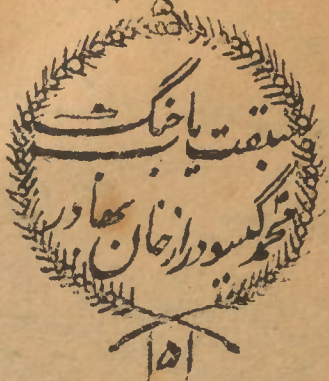 سبقت یاب جنگ
محمد گیسودراز خان بهادر
۱۵۱